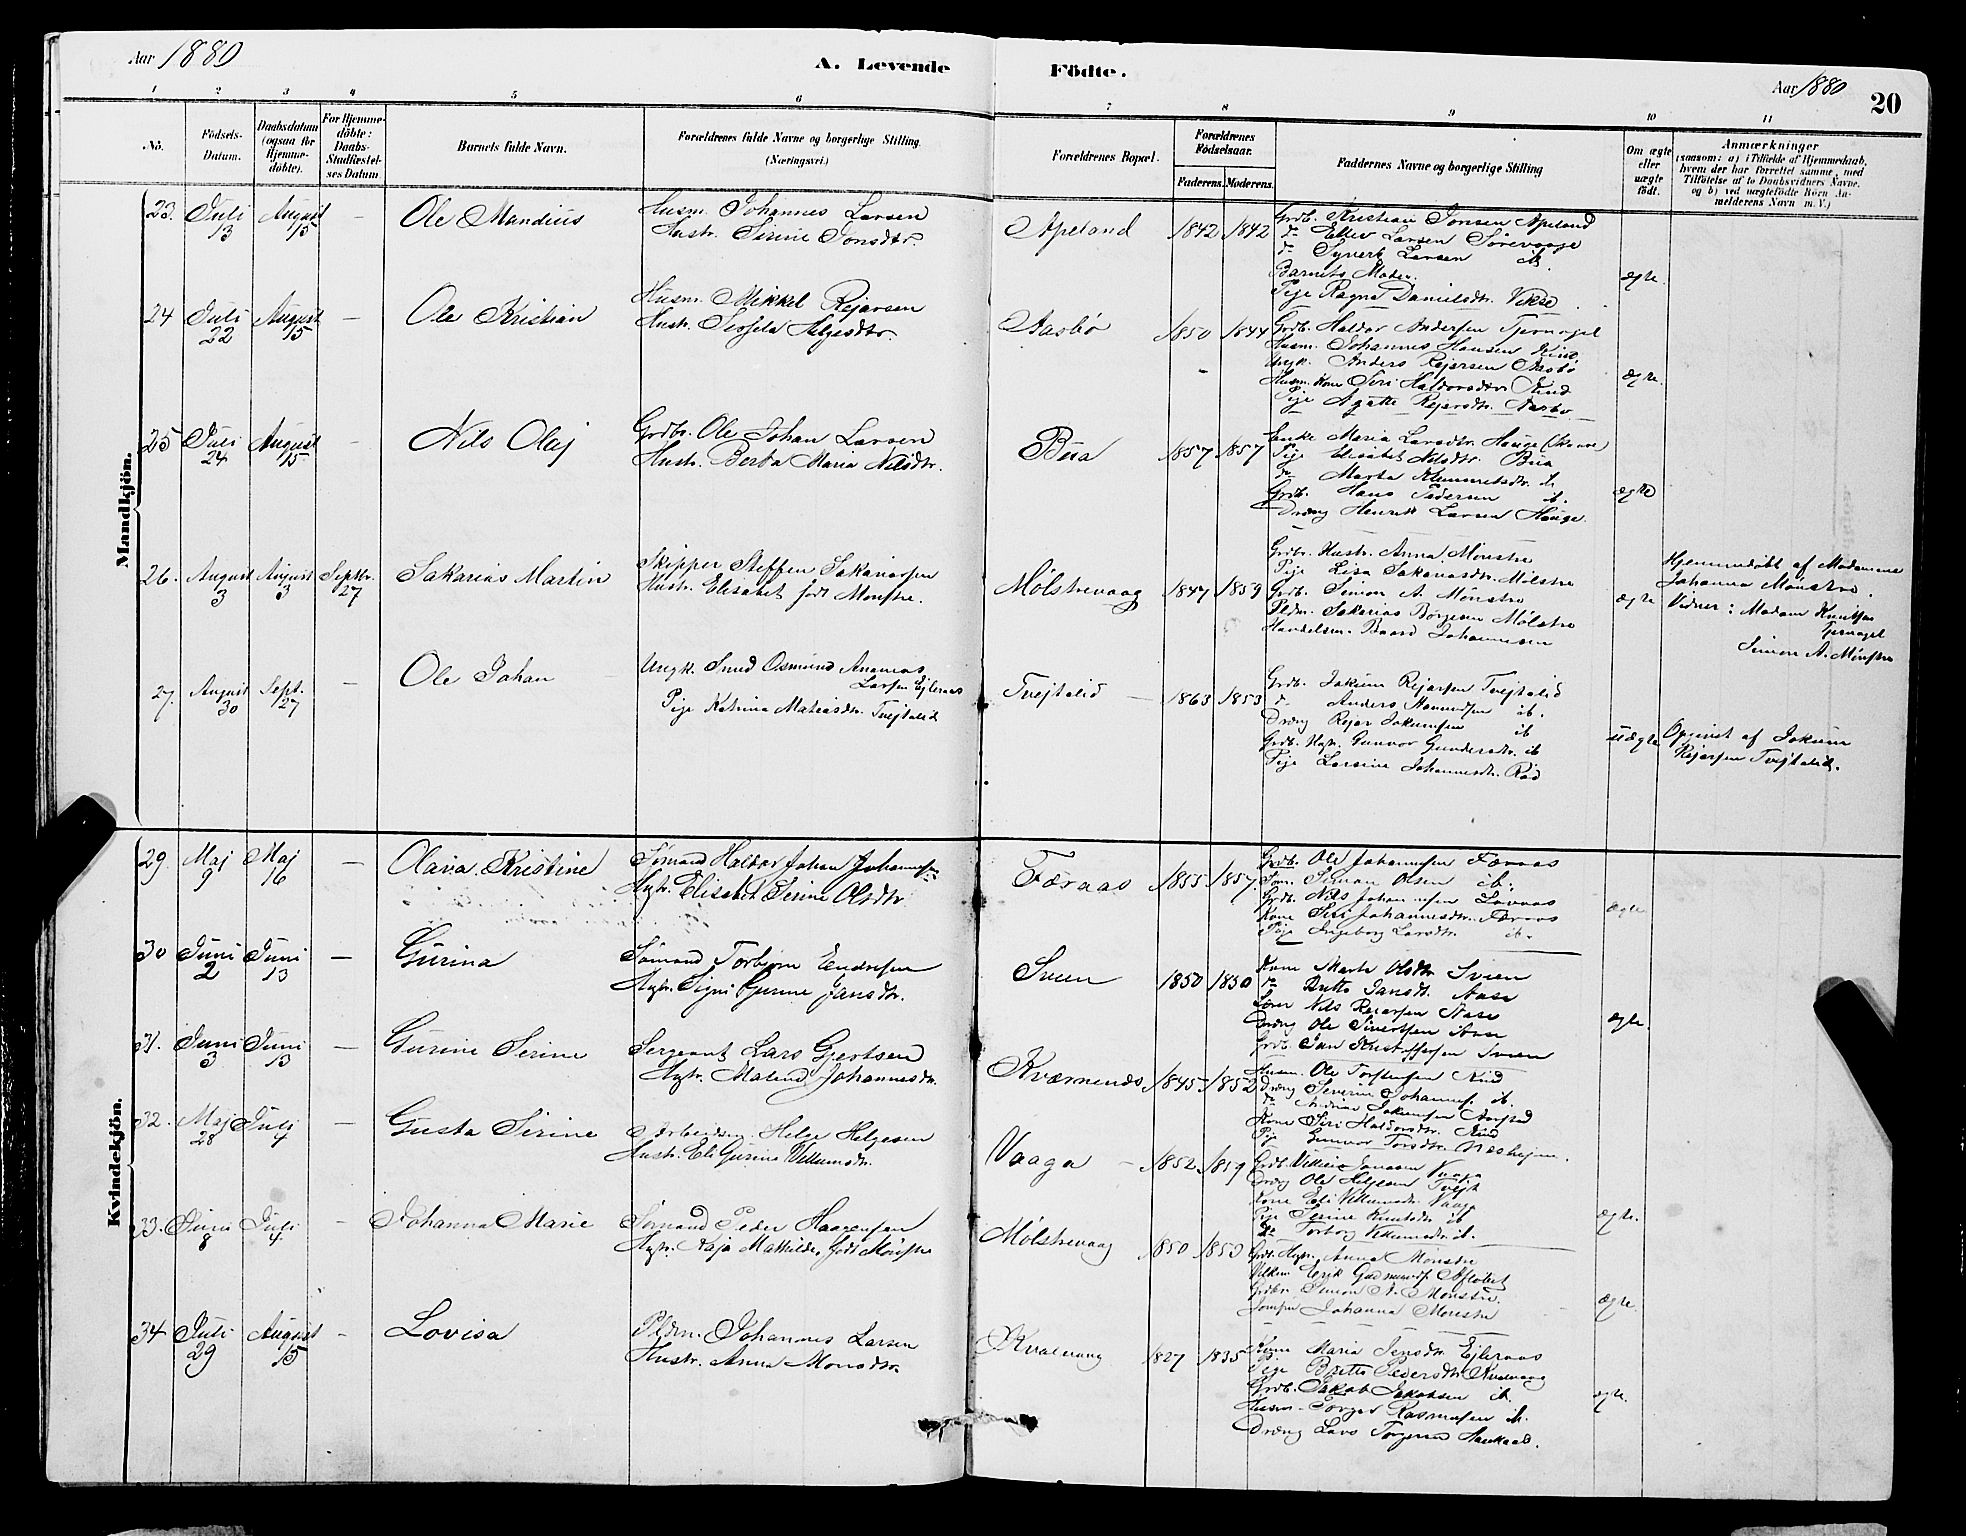 Aar 1880
A. Levende Födte.
Aar 1880
20
1 2 3 4 5 6 7 8 9 10 11
No.
Födsels-Datum.
Daabsdatum (ogsaa for Hjemme-döbte).
For Hjemme-döbte: Daabs-Stadfæstel-ses Datum
Barnets fulde Navn.
Forældrenes fulde Navne og borgerlige Stilling. (Næringsvei.)
Forældrenes Bopæl.
Forældrenes Födselsaar.
Faderens. Moderens.
Faddernes Navne og borgerlige Stilling
Om ægte eller uægte födt.
Anmærkninger
(saasom: a) i Tilfælde af Hjemmedaab, hvem der har forrettet samme, med Tilföielse af to Daabsvidners Navne, og b) ved uægtefödte Börn An-melderens Navn m. V.)
Mandkjön.
23. Juli 13 August 15 – Ole Mandius
Husm. Johannes Larsen
Hustr. Sirine Jonsdtr.
Apeland 1842 1842
Grdb. Kristian Jonsen Apeland
do Ellev Larsen Sörevaage
do Syvert Larsen ib.
Barnets Moder.
Pige Ragna Danielsdtr. Vikse
ægte.
24 Juli 22 August 15 – Ole Kristian
Husm. Mikkel Rejarsen
Hustr. Helgesdtr.
Aasbø 1850 1844
Grdb. Haldor Andersen Tjernagel
Husm. Johannes Hansen
Ungk. Anders Rejersen Aasbø
Husm. Kone Siri Haldorsdtr.
Pige Agatte Rejersdtr. Aasbø
ægte.
25 Juli 24 August 15 – Nils Olaj
Grdbr. Ole Johan Larsen
Hustr. Berta Maria Nilsdtr.
Bua 1857 1857
Enke Maria Larsdtr. Hauge
Pige Elisabet Nilsdtr. Bua
do Marta Klemmetsdtr. ib.
Grdb. Hans Pedersen ib.
Dreng Henrik Larsen Hauge.
ægte
26. August 3 August 3 Septbr. 27 Sakarias Martin
Skipper Steffen Sakariasen
Hustr. Elisabet født Mønstre.
Mølstrevaag 1847 1859
Grdbr. Hustr. Anna Mønstre
Pige Lisa Sakariasdtr. Mølstre
Grdb. Simon A. Mønstre
Pldm. Sakarias Børgesen Mølstre
Handelsm. Baard Johannesen
ægte
Hjemmedøbt af Madamme
Johanna Mønstre.
Vidner: Madam Knutsen
Tjernagel
Simon A. Mønstre
27. August 30 Sept. 27 – Ole Johan
Ungk. Osmund Ananias
Larsen Ejleraas
Pige Katrina Matiasdtr. Tvejtalid
Tvejtalid – 1863 1853
Grdb. Jakum Rejarsen Tvejtalid
do Anders ib.
Dreng Rejar Jakumsen ib
Grdb. Hustr. Gunvor Gundersdtr. ib
Pige Larsine Johannesdtr. Rød
uægte
Opgivet af Jakum
Rejarsen Tvejtalid.
Kvindekjön.
29. Maj 9 Maj 16 – Olava Kristine
Sømand Haldor Johan Johannesen
Hustr. Elisabet Serine Olsdtr
Færaas 1855 1857.
Grdb. Ole Johannesen Færaas
Søm. Simon Olsen ib.
Grdb. Nils Johannesen Løvaas
Kone Siri Johannesdtr. Færaas
Pige Ingeborg Larsdtr. ib.
ægte
30 Juni 2 Juni 13 – Gurina
Sømand Torbjørn Endresen
Hustr. Signi Gurine Jansdtr.
Sveen 1850 1850
Kone Marta Olsdtr. Sveen
do Britta Jansdt. Aase
Søm Nils Rejarsen Aase
Dreng Ole Sivertsen Aase
Grdb. Jan Kristoffersen Sveen
ægte.
31. Juni 3 Juni 13 – Gurine Serine
Sergeant Lars Gjertsen
Hustr. Malene Johannesdtr.
Kværnenes 1845 1852
Husm. Ole Torstensen
Dreng Severin Johannes. ib.
do Andreas Jakumsen
Kone Siri Haldorsdtr.
Pige Gunvor Torsdtr.
32. Maj 28 Juli 4 – Gusta Serine
Arbeidsm. Helge Helgesen
Hustr. Eli Gurina Villumsdtr.
Vaaga – 1852 1859
Grdb. Villum Jonassen Vaaga
Dreng Ole Helgesen Tvejt
Kone Eli Villumsdtr. Vaage
Pige Serine Knutsdtr. ib
do Torborg Villumsdtr. ib.
ægte.
33. Juni 8 Juli 4 – Johanna Marie
Sømand Peder Haagensen
Hustr. Kaja Mathilde, født Mønstre
Mølstrevaag 1850 1850
Grdb. Hustr. Anna Mønstre
Erik Gudmunds.
Grdbr. Simon A. Mønstre
Jomfru Johanna Mønstre
ægte
34 Juli 29 August 15 – Lovisa
Pldm. Johannes Larsen
Hustr. Anna Monsdtr
Kvalevaag 1827 1835
Kone Maria Jensdtr. Ejleraas
Pige Britta Pedersdtr. Kvalevaag
Grdb. Jakob Jakobsen ib.
Husm. Torger Rasmusen ib.
Dreng Lars Torgersen Haukaas.
ægte